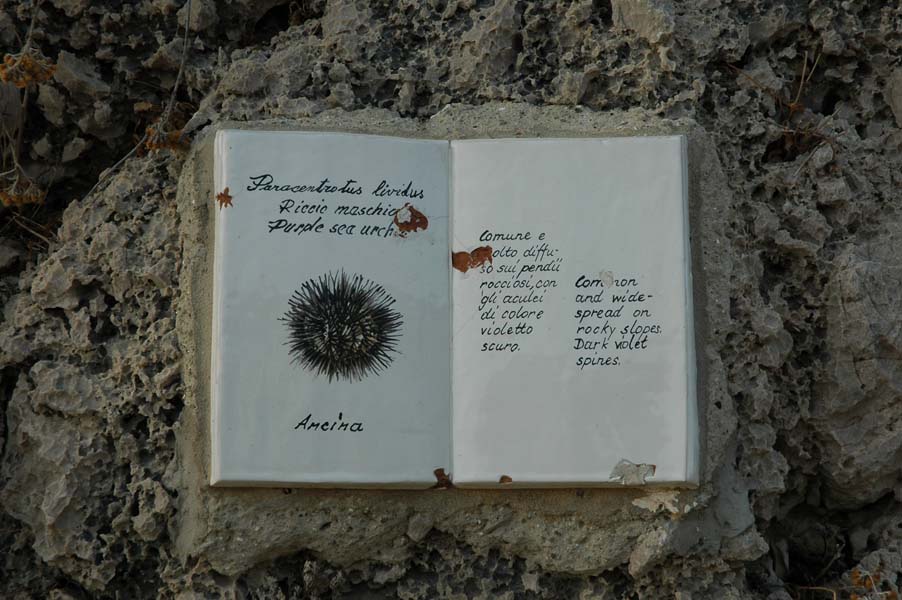 Paracentrotus lividus
Riccio maschio
Purple sea urchin
Ancina
Comune e
molto diffu-
so sui pendii
rocciosi, con
gli aculei
di colore
violetto
scuro.
Common
and wide-
spread on
rocky slopes.
Dark violet
spines.